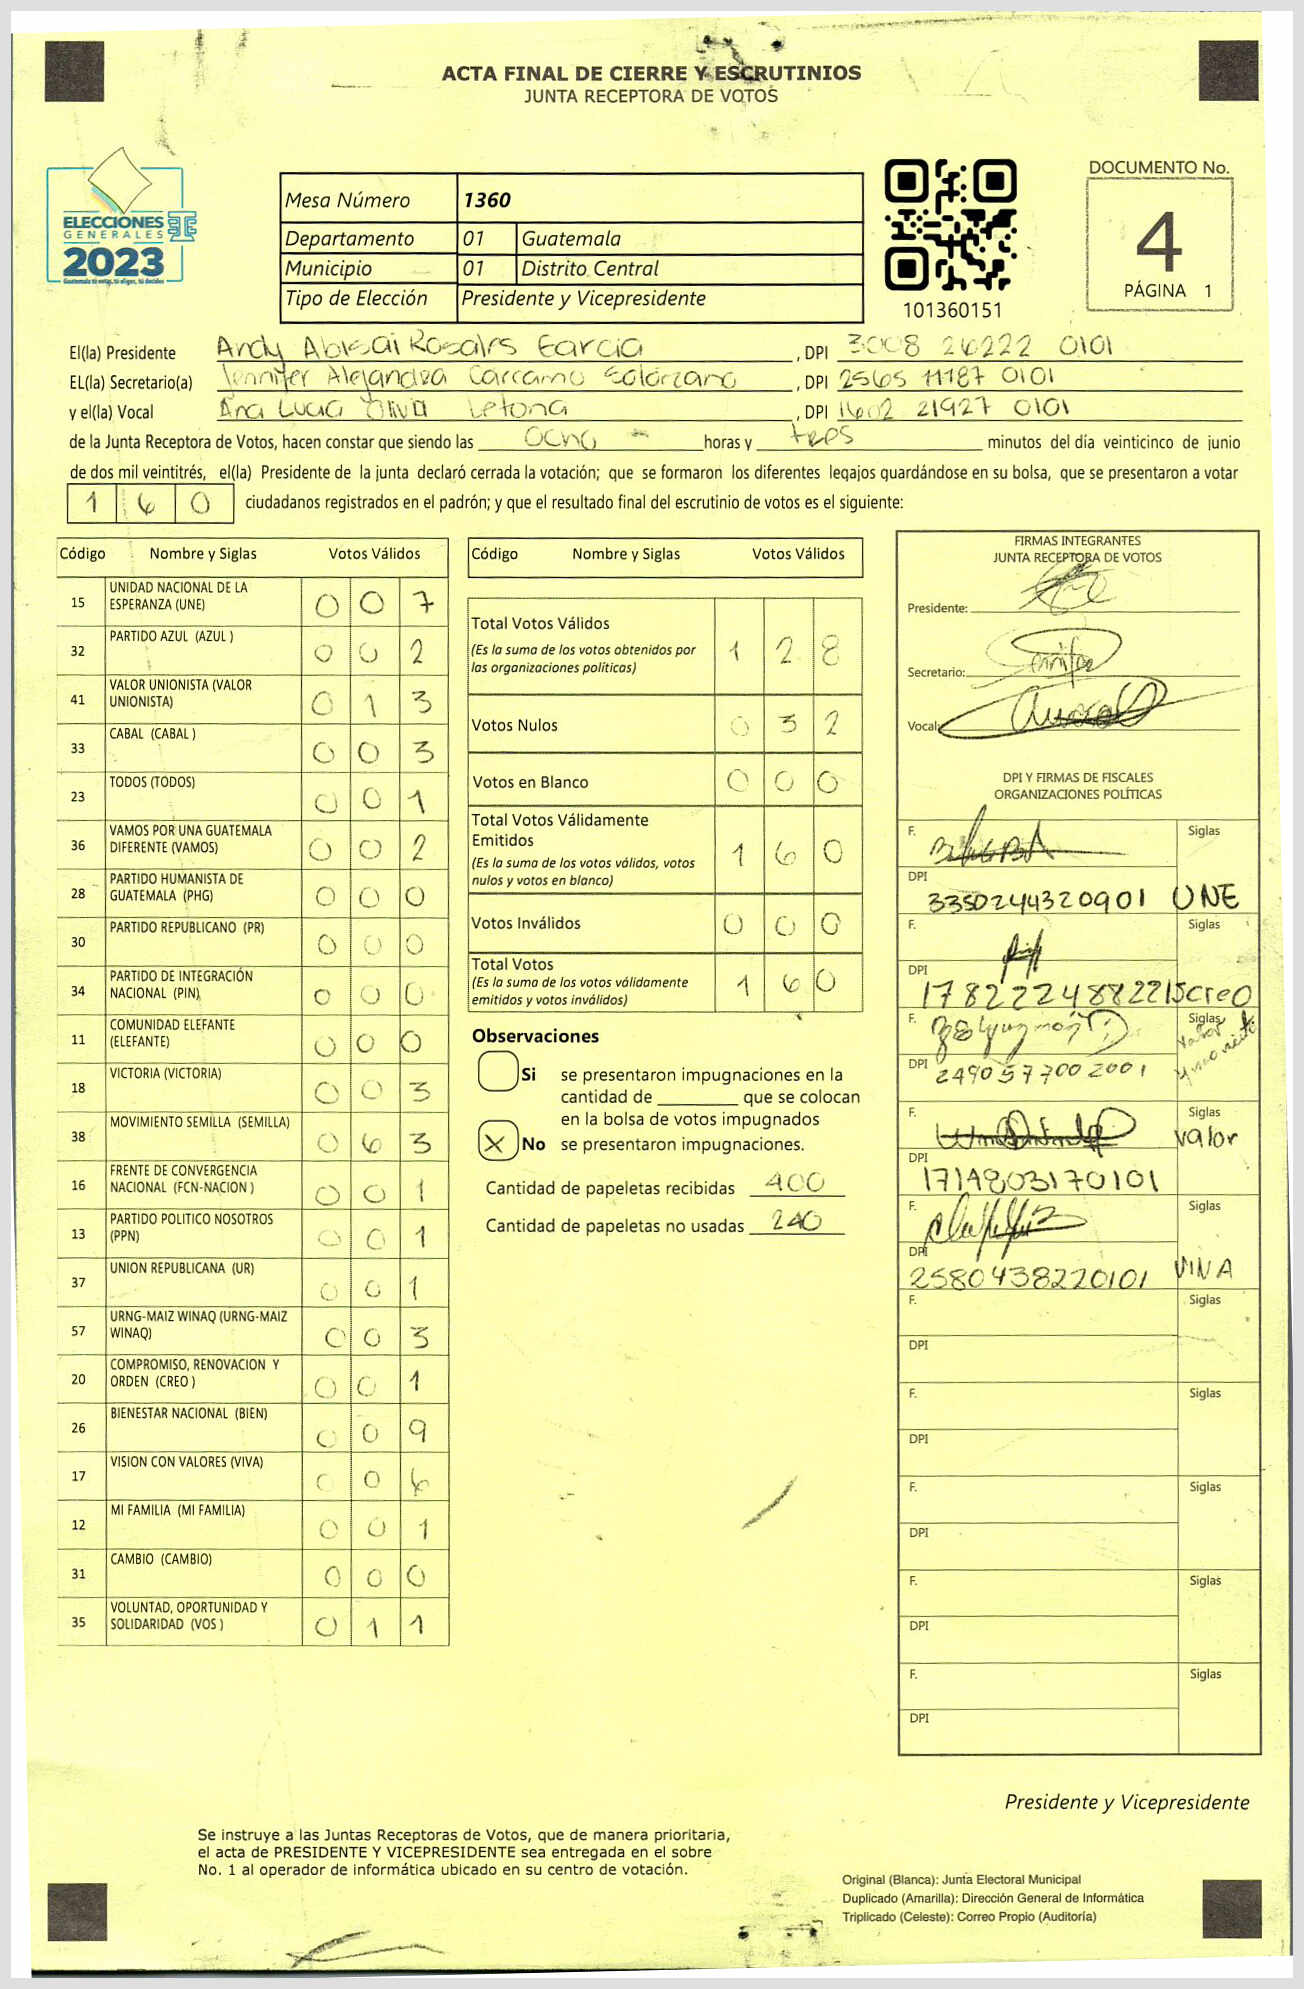 ACTA FINAL DE CIERRE Y ESCRUTINIOS
JUNTA RECEPTORA DE VOTOS
ELECCIONES
GENERALES
2023
Guatemala tú eres, tú eliges, tú decides
Mesa Número 1360
Departamento 01 Guatemala
Municipio 01 Distrito Central
Tipo de Elección Presidente y Vicepresidente
101360151
DOCUMENTO No.
4
PÁGINA 1
El(la) Presidente Andy Abisai Rosales Garcia, DPI 3008 26222 0101
EL(la) Secretario(a) Jennifer Alejandra Carcamo Solórzano, DPI 2565 11187 0101
y el(la) Vocal Ana Lucia Oliva Letona, DPI 1602 21927 0101
de la Junta Receptora de Votos, hacen constar que siendo las ocho horas y tres minutos del día veinticinco de junio
de dos mil veintitrés, el(la) Presidente de la junta declaró cerrada la votación; que se formaron los diferentes legajos guardándose en su bolsa, que se presentaron a votar
160 ciudadanos registrados en el padrón; y que el resultado final del escrutinio de votos es el siguiente:
Código Nombre y Siglas Votos Válidos
15 UNIDAD NACIONAL DE LA ESPERANZA (UNE) 0 0 7
32 PARTIDO AZUL (AZUL ) 0 0 2
41 VALOR UNIONISTA (VALOR UNIONISTA) 0 1 3
33 CABAL (CABAL ) 0 0 3
23 TODOS (TODOS) 0 0 1
36 VAMOS POR UNA GUATEMALA DIFERENTE (VAMOS) 0 0 2
28 PARTIDO HUMANISTA DE GUATEMALA (PHG) 0 0 0
30 PARTIDO REPUBLICANO (PR) 0 0 0
34 PARTIDO DE INTEGRACIÓN NACIONAL (PIN) 0 0 0
11 COMUNIDAD ELEFANTE (ELEFANTE) 0 0 0
18 VICTORIA (VICTORIA) 0 0 3
38 MOVIMIENTO SEMILLA (SEMILLA) 0 6 3
16 FRENTE DE CONVERGENCIA NACIONAL (FCN-NACION ) 0 0 1
13 PARTIDO POLITICO NOSOTROS (PPN) 0 0 1
37 UNION REPUBLICANA (UR) 0 0 1
57 URNG-MAIZ WINAQ (URNG-MAIZ WINAQ) 0 0 3
20 COMPROMISO, RENOVACION Y ORDEN (CREO ) 0 0 1
26 BIENESTAR NACIONAL (BIEN) 0 0 9
17 VISION CON VALORES (VIVA) 0 0 6
12 MI FAMILIA (MI FAMILIA) 0 0 1
31 CAMBIO (CAMBIO) 0 0 0
35 VOLUNTAD, OPORTUNIDAD Y SOLIDARIDAD (VOS ) 0 1 1
Código Nombre y Siglas Votos Válidos
Total Votos Válidos 1 2 8
(Es la suma de los votos obtenidos por
las organizaciones políticas)
Votos Nulos 0 3 2
Votos en Blanco 0 0 0
Total Votos Válidamente
Emitidos 1 6 0
(Es la suma de los votos válidos, votos
nulos y votos en blanco)
Votos Inválidos 0 0 0
Total Votos 1 6 0
(Es la suma de los votos válidamente
emitidos y votos inválidos)
Observaciones
Si se presentaron impugnaciones en la
cantidad de ________ que se colocan
en la bolsa de votos impugnados
X No se presentaron impugnaciones.
Cantidad de papeletas recibidas 400
Cantidad de papeletas no usadas 240
FIRMAS INTEGRANTES
JUNTA RECEPTORA DE VOTOS
Presidente:
Secretario:
Vocal:
DPI Y FIRMAS DE FISCALES
ORGANIZACIONES POLÍTICAS
F. Siglas
DPI 3350244320901 UNE
F. Siglas
DPI 1782224882215 Creo
F. Siglas
DPI 2490577002001
F. Siglas
valor
DPI 1714803170101
F. Siglas
DPI 2580438220101 VIVA
F. Siglas
DPI
F. Siglas
DPI
F. Siglas
DPI
F. Siglas
DPI
F. Siglas
DPI
Presidente y Vicepresidente
Se instruye a las Juntas Receptoras de Votos, que de manera prioritaria,
el acta de PRESIDENTE Y VICEPRESIDENTE sea entregada en el sobre
No. 1 al operador de informática ubicado en su centro de votación.
Original (Blanca): Junta Electoral Municipal
Duplicado (Amarilla): Dirección General de Informática
Triplicado (Celeste): Correo Propio (Auditoría)